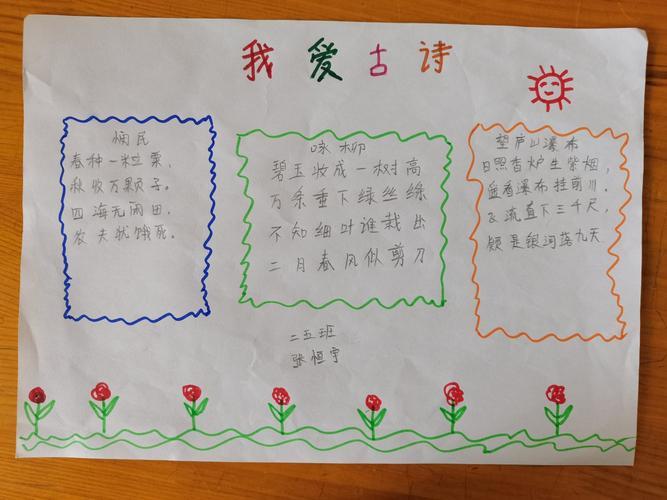 我爱古诗
悯民
春种一粒粟，
秋收万颗子。
四海无闲田，
农夫犹饿死。
咏柳
碧玉妆成一树高
万条垂下绿丝绦
不知细叶谁裁出
二月春风似剪刀
望庐山瀑布
日照香炉生紫烟，
遥看瀑布挂前川。
飞流直下三千尺，
疑是银河落九天
二五班
张恒宇